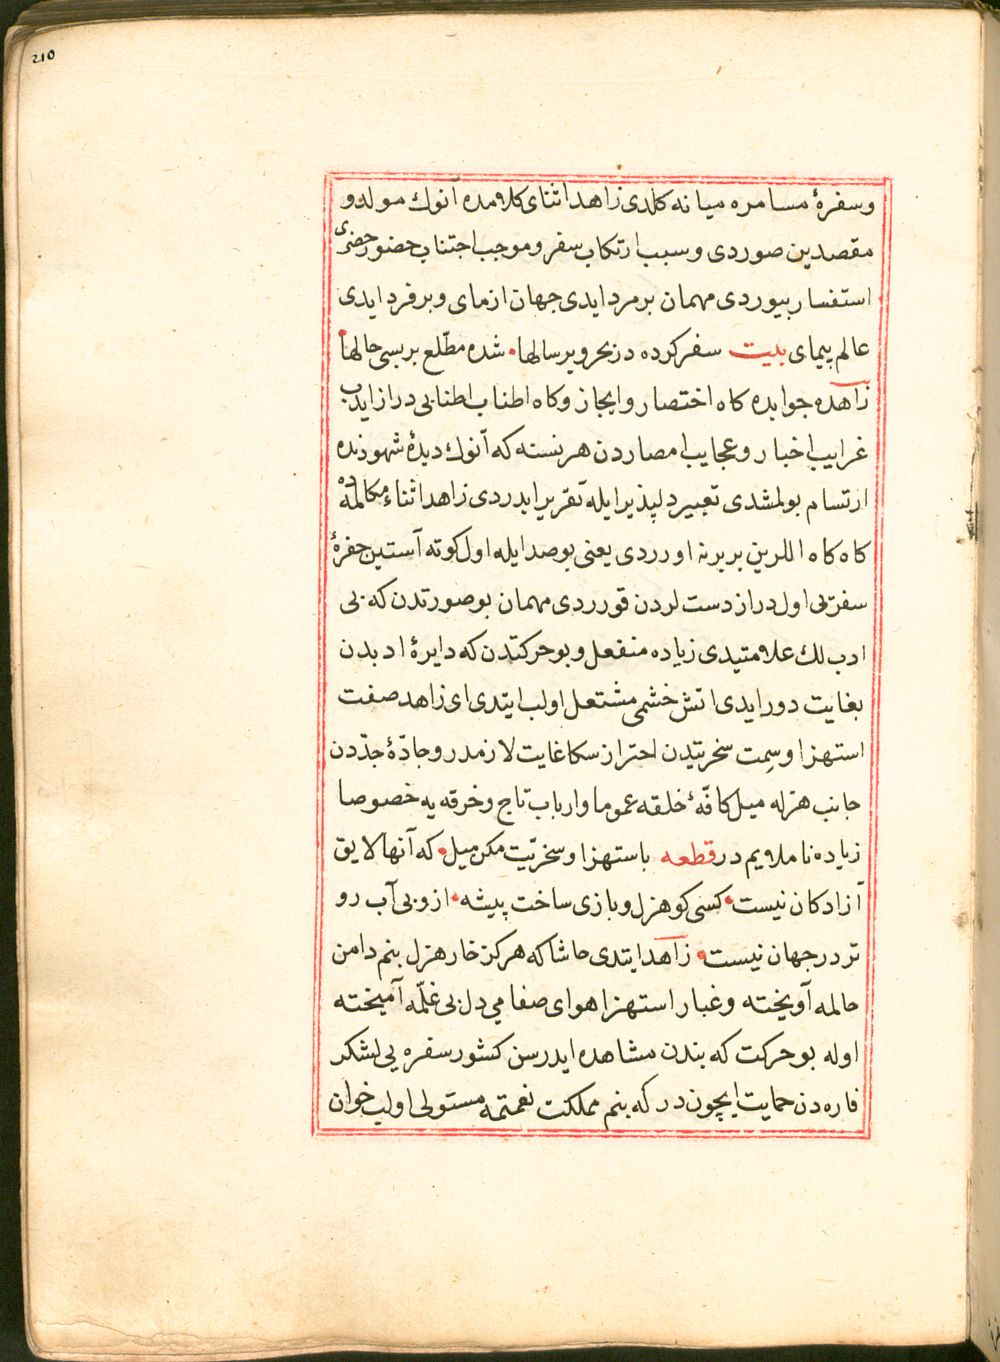 210
وسفرهٔ مسامره میانه کلدی زاهد اثنای کلامده آنوك مولد و
مقصدین صوردی و سبب ارتکاب سفر و موجب اجتناب حضور حضرى
استفسار بیوردی مهمان بر مرد ایدی جهان ازمای و بر فرد ایدی
عالم پیمای بیت سفر کرده در بحر و بر سالها • شده مطّلع بر بسی حالها •
زاهده جوابده کاه اختصار و ایجاز و کاه اطناب اطنابی دراز ایدب
غرایب اخبار و عجایب امصاردن هر نسته که آنوك دیدهٔ شهودنده
ارتسام بولمشدی تعبیر دلپذیر ایله تقریر ایدردی زاهد اثناء مکالمه ده
کاه کاه اللرین بر برنه اوردی یعنی بو صدا ایله اول کوته آستین جفرهٔ
سفرتی اول دراز دست لردن قوردی مهمان بو صورتدن که بی
ادب لك علامتیدی زیاده منفعل و بو حرکتدن که دایرهٔ ادبدن
بغایت دور ایدی اتش خشمی مشتعل اولب ایتدی ای زاهد صفت
استهزا و سِمت سخریتدن احتراز سکا غایت لازمدر و جادّهٔ جدّدن
جانب هزله میل کافّهٔ خلقه عموما و ارباب تاج و خرقه یه خصوصا
زیاده ناملایم در قطعه باستهزا و سخریّت مکن میل • که آنها لایق
آزادکان نیست • کسی کو هزل و بازی ساخت پیشه • ازو بی آب رو
تر در جهان نیست • زاهد ایتدی حاشا که هرکز خار هزل بنم دامن
حالمه آویخته و غبار استهزا هوای صفای دل بی غلّمه آمیخته
اوله بو حرکت که بندن مشاهده ایدرسن کشور سفره یی لشکر
فاره دن حمایت ایچون در که بنم مملکت نعمتمه مستولی اولب خوان